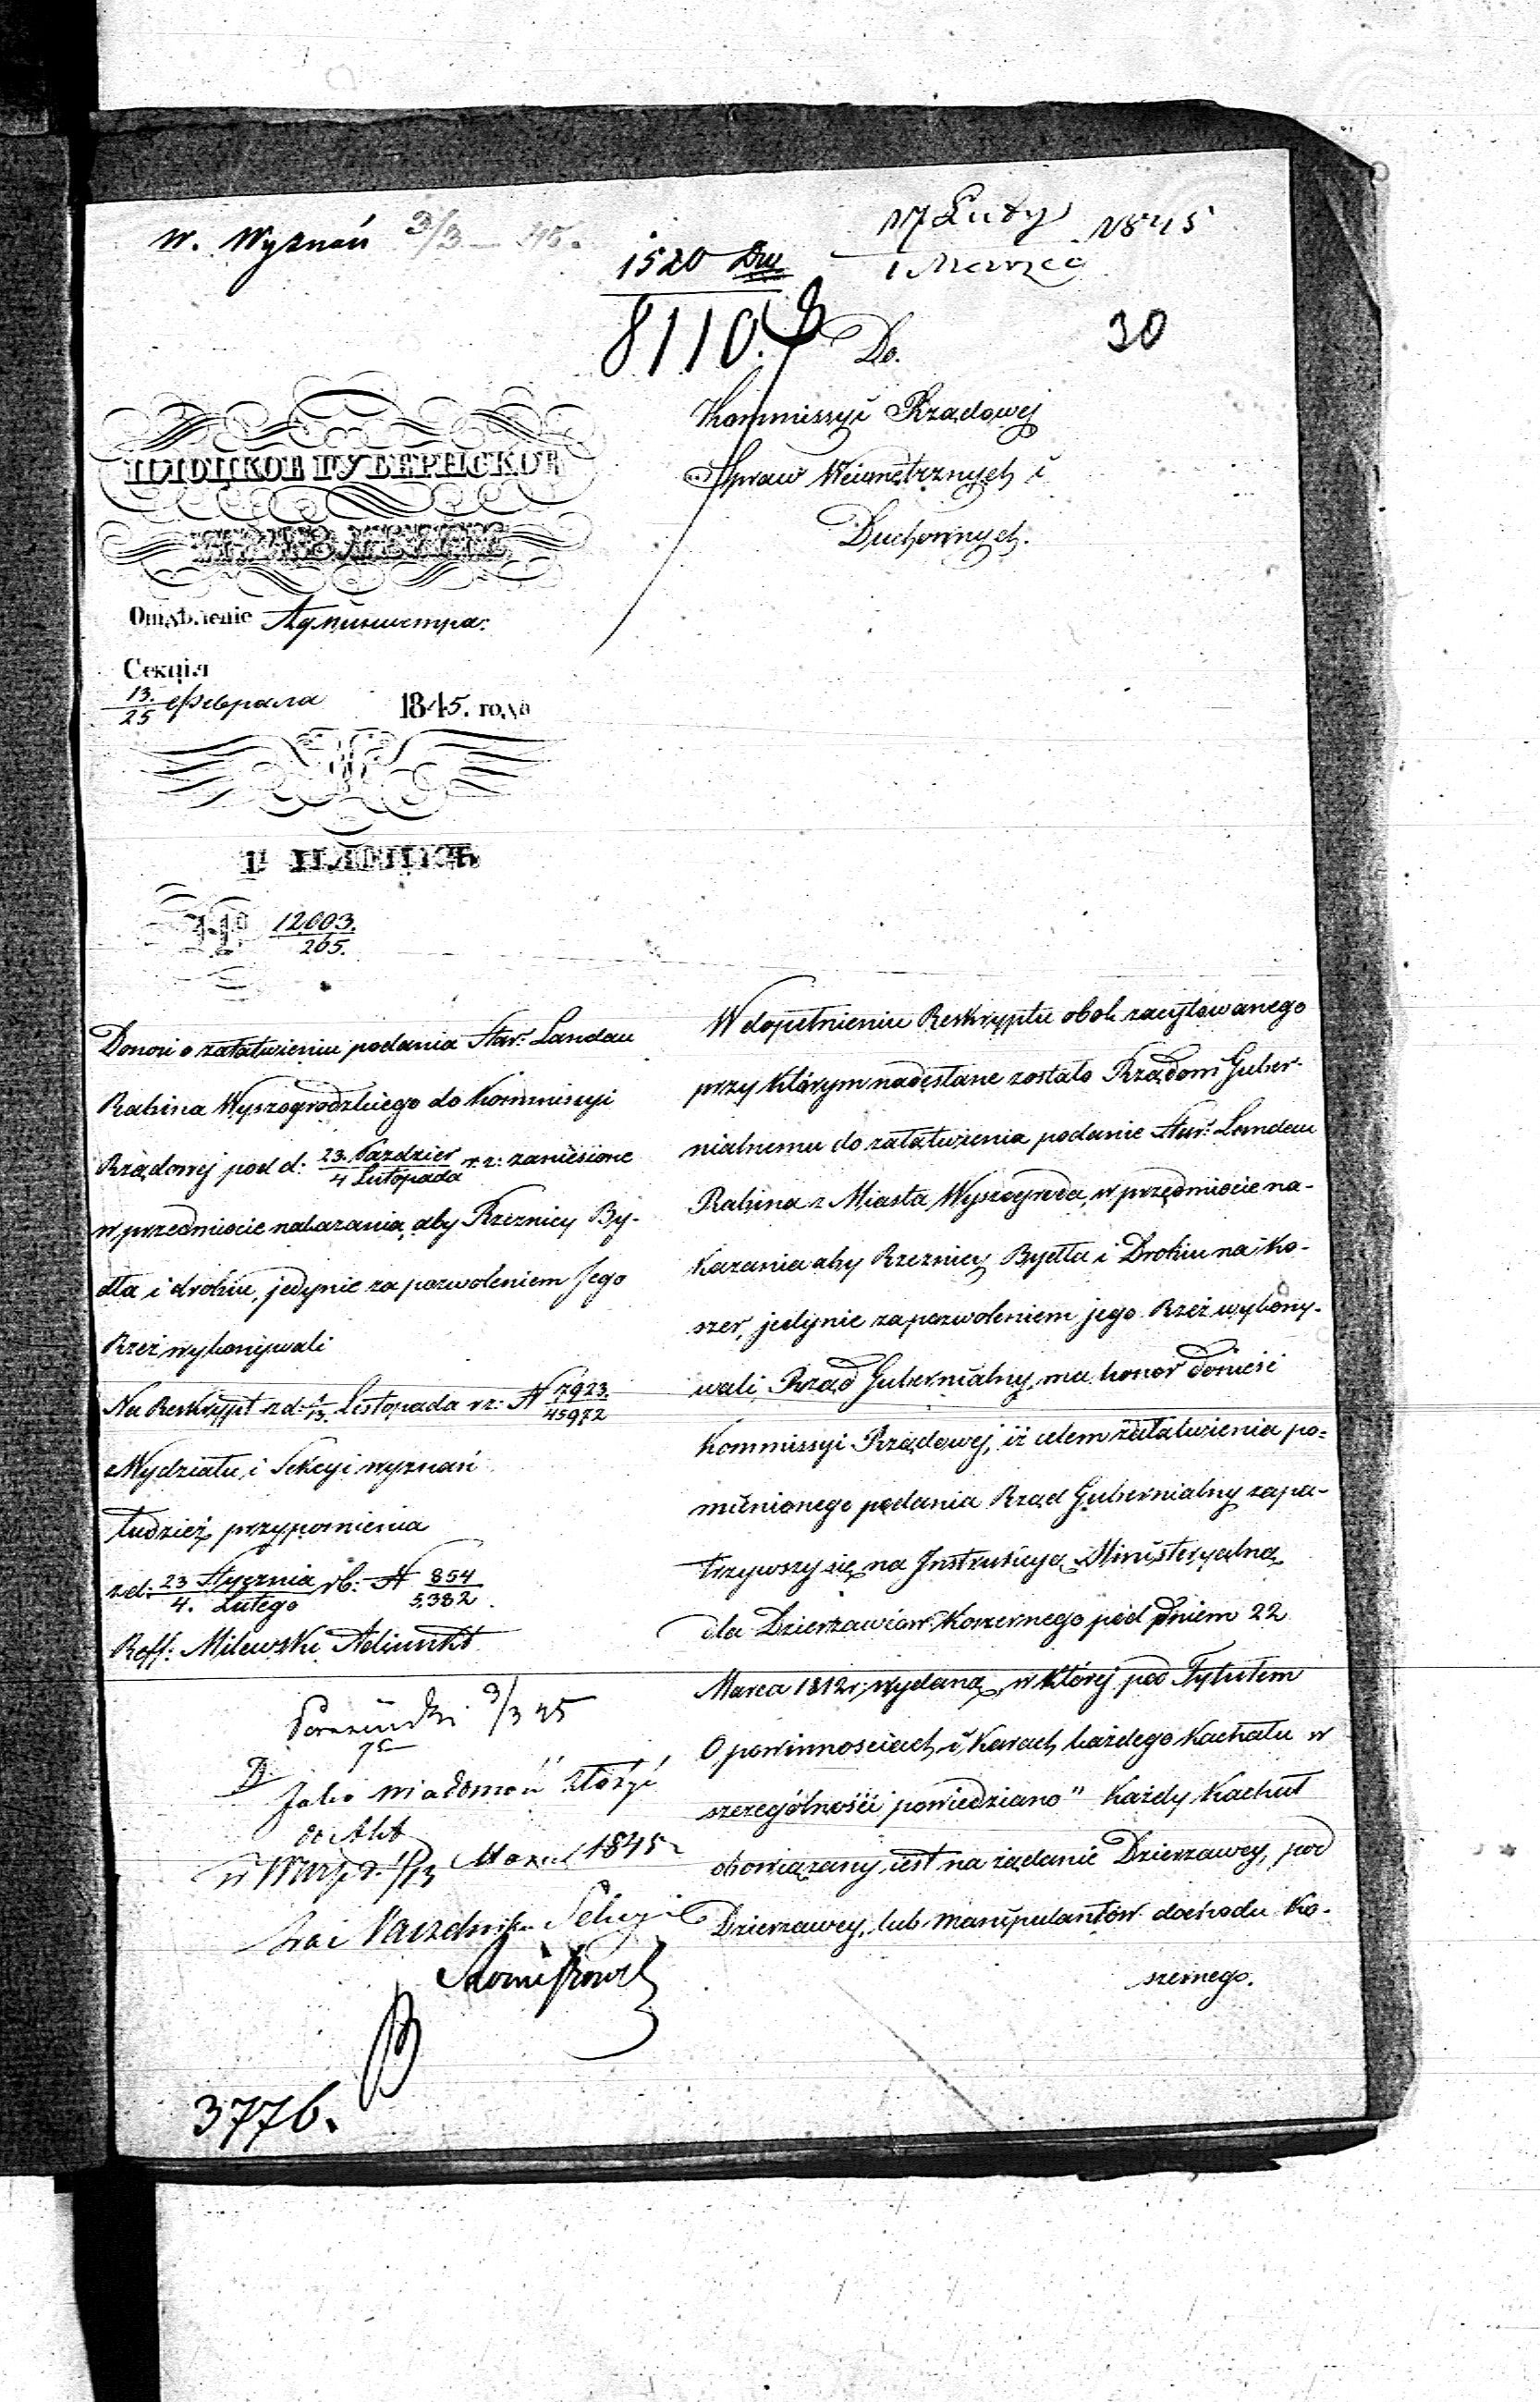 W. Wyznań 3/3 - 45.
17 Luty
1 Marzec 1845
1520 Dw
8110.
30
Do.
Kommissyi Rządowej
Spraw Wewnętrznych i
Duchownych.
ПЛОЦКОЕ ГУБЕРНСКОЕ
ПРАВЛЕНІЕ
Отдѣленіе Администра:
Секція
13./25 Февраля 1845. года
ПЛОЦКЪ
No 12003./265.
Donosi o załatwieniu podania Staw. Landau
Rabina Wyszogrodzkiego do Kommissyi
Rządowej pod d: 23. Paździer/4 Listopada r. z: zaniesione
w przedmiocie nakazania, aby Rzeznicy By-
dła i drobiu, jedynie za pozwoleniem Jego
Rzeź wykonywali
Na Reskrypt z d: 1/13. Listopada r z: N 7923./45972
Wydziału i Sekcyi wyznań
tudzież przypomnienia
z d: 23 Stycznia/4. Lutego r b: N 854/5,382.
Reff: Milewski Adiunkt
3/3 45
Jako wiadomość złożyć
do Akt
w Warsz. d. 1/13 Marca 1845
Naczelnika Sekcyi
3776.
W dopełnieniu Reskryptu obok zacytowanego
przy którym nadesłane zostało Rządowi Guber-
nialnemu do załatwienia podanie Staw. Landau
Rabina z Miasta Wyszogroda, w przedmiocie na-
kazania aby Rzeznicy Bydła i Drobiu na Ko-
szer, jedynie za pozwoleniem jego Rzeź wykony-
wali, Rząd Gubernialny, ma honor donieść
Kommissyi Rządowej, iż celem załatwienia po-
mienionego podania Rząd Gubernialny zapa-
trzywszy się na Instrukcyą Ministeryalną
dla Dzierzawców Koszernego pod dniem 22
Marca 1812 r. wydaną, w której pod Tytułem
O powinnosciach i Karach każdego Kachału w
szczególności powiedziano " Każdy Kachał
obowiązany jest na żądanie Dzierzawcy, pod
Dzierzawcy, lub manipulantów dochodu Ko-
szernego.